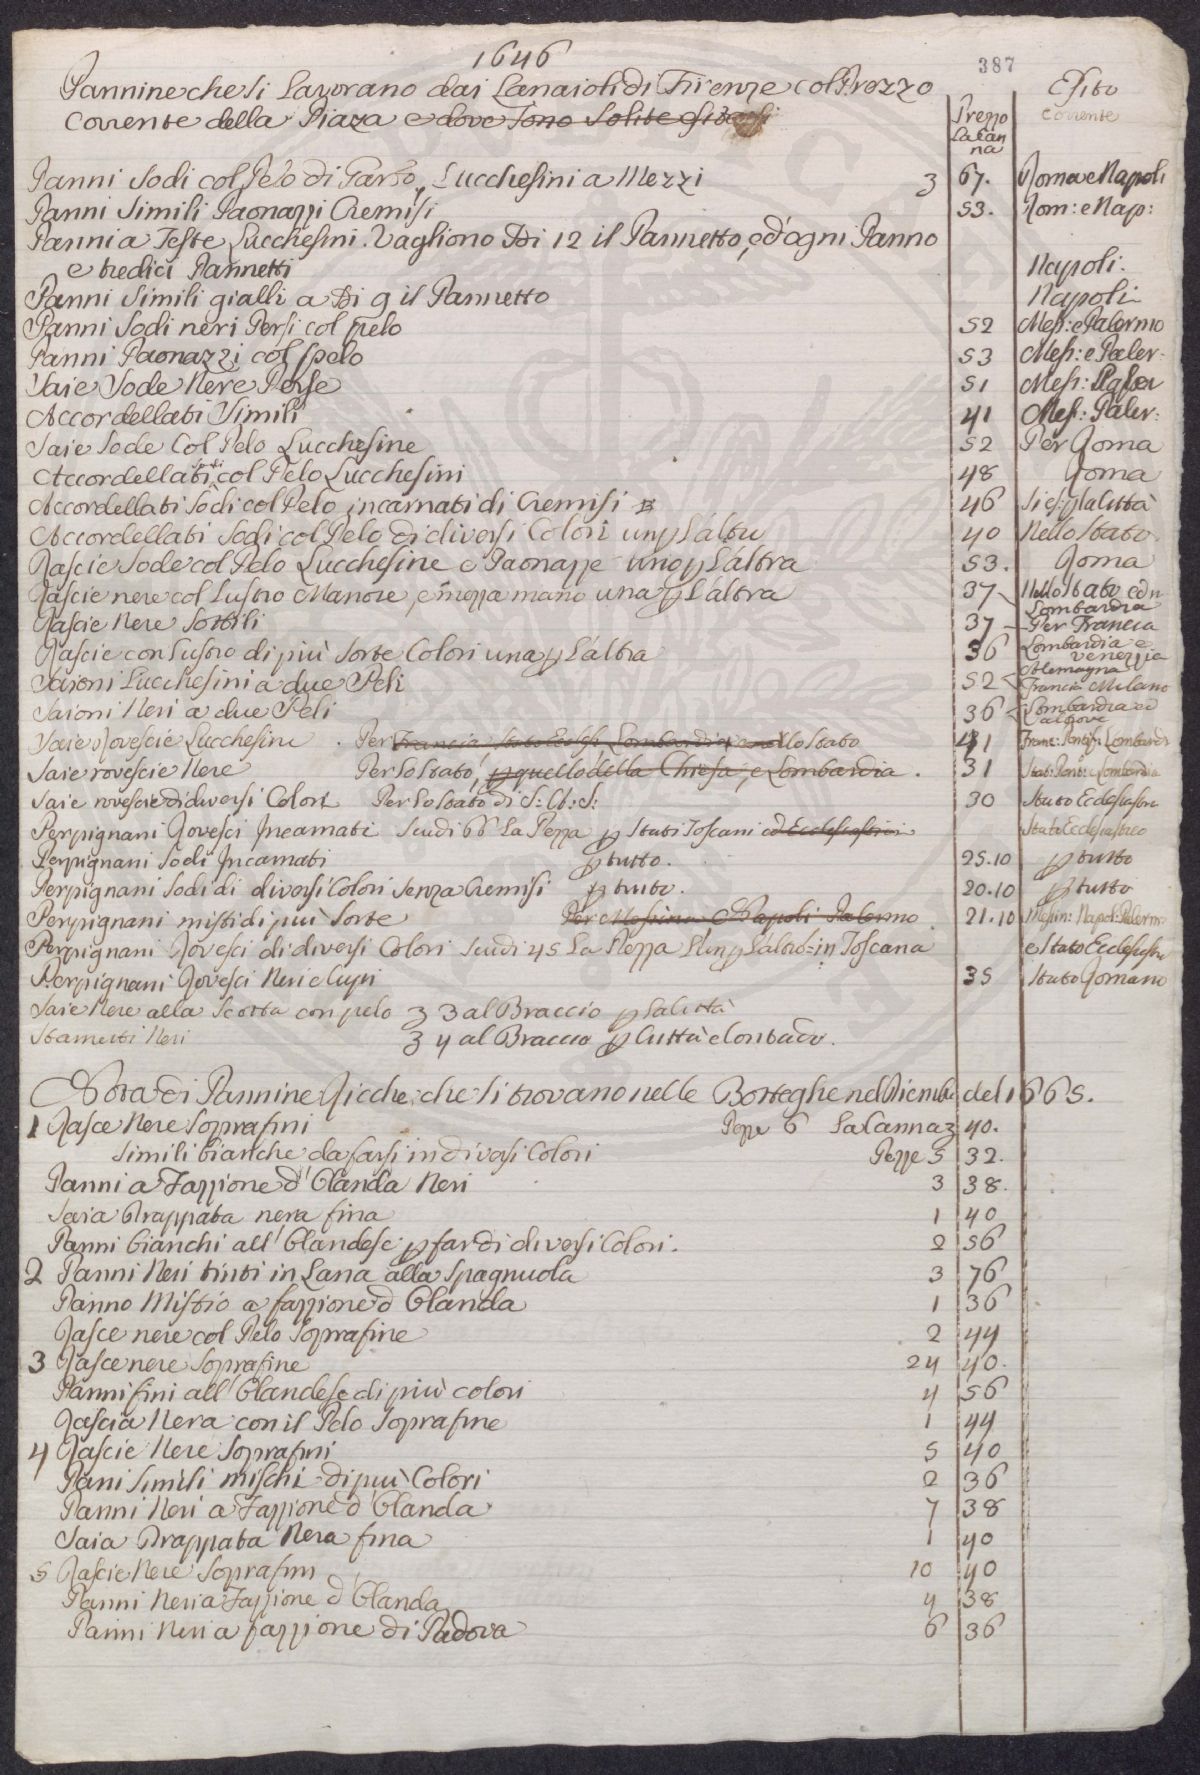 1646
387
Pannine che si Lavorano dai Lanaioli di Firenze col Prezzo
Corrente della Piaza e dove sono solite esitarsi
Prezzo
La Can
na
Esito
Corrente
Panni Sodi col Pelo di Garbo, Lucchesini a Mezzi 3 67. Roma e Napoli
Panni Simili Paonazzi Cremisi 53. Rom: e Nap:
Panni a Teste Lucchesini. Vagliono Di 12 il Pannetto, ed ogni Panno
e tredici Pannetti Napoli.
Panni Simili gialli a Di 9 il Pannetto Napoli
Panni Sodi neri Persi col pelo 52 Mess: e Palermo
Panni Paonazzi col pelo 53 Mess: e Paler-
Saie Sode Nere Perse 51 Mess:
Accordellati Simili 41 Mess: Paler:
Saie Sode Col Pelo Lucchesine 52 Per Roma
Accordellati sodi col Pelo Lucchesini 48 Roma
Accordellati Sodi col Pelo incarnati di Cremisi 46 la Città
Accordellati Sodi col Pelo di diversi Colori un p l'altro 40 Nello Stato
Rascie Sode col Pelo Lucchesine e Paonazze uno p l'altra 53. Roma
Rascie nere col Lustro Manore, e mezza mano una p l'altra 37 Nello Stato ed in
Lombardia
Rascie Nere Sottili 37 Per Francia
Rascie con Lustro di più Sorte Colori una p l'altra 36 Lombardia e
Venezzia
Saioni Lucchesini a due Peli 52 Alemagna
Francia Milano
Saioni Neri a due Peli 36 Lombardia ed
altrove
Saie Rovescie Lucchesine. Per Francia Stato Eccles: Lombardia e nello Stato 41 Franc: Pontif: Lombardi
Saie rovescie Nere Per Lo Stato, p quello della Chiesa, e Lombardia. 31 Stat: Pont: Lombardia
Saie rovescie di diversi Colori Per Lo Stato di S: A: S: 30 Stato Ecclesiastico
Perpignani Rovesci Incarnati Scudi 66 La Pezza p Stati Toscani ed Ecclesiastici Stato Ecclesiastico
Perpignani Sodi Incarnati p tutto. 25.10 p tutto
Perpignani Sodi di diversi Colori senza Cremisi p tutto. 20.10 p tutto
Perpignani misti di più Sorte Per Messina e Napoli Palermo 21.10 Messin: Napol: Palerm:
Perpignani Rovesci di diversi Colori Scudi 45 La Pezza l'un p l'altro: in Toscana e Stato Ecclesiastico
Perpignani Rovesci Neri e Cupi 35 Stato Romano
Saie Nere alla Scotta con pelo 3 3 al Braccio p la Città
Stametti Neri 3 4 al Braccio p Città e Contado.
Nota di Pannine Ricche, che si trovano nelle Botteghe nel Dicembre del 1665.
1 Rasce Nere Soprafini Pezze 6 La Canna 3 40.
Simili bianche da farsi in diversi Colori Pezze 5 32.
Panni a Fazzione d'Olanda Neri 3 38.
Saia Drappata nera fina 1 40
Panni bianchi all'Olandese p far di diversi Colori. 2 56
2 Panni Neri tinti in Lana alla Spagnuola 3 76
Panno Mistio a fazzione d Olanda 1 36
Rasce nere col Pelo Soprafine 2 44
3 Rasce nere Soprafine 24 40.
Panni fini all'Olandese di più colori 4 56
Rascia Nera con il Pelo Soprafine 1 44
4 Rascie Nere Soprafini 5 40
Pani Simili mischi di più Colori 2 36
Panni Neri a Fazzione d'Olanda 7 38
Saia Drappata Nera fina 1 40
5 Rascie Nere Soprafini 10 40
Panni Neri a Fazzione d'Olanda 4 38
Panni Neri a fazzione di Padova 6 36